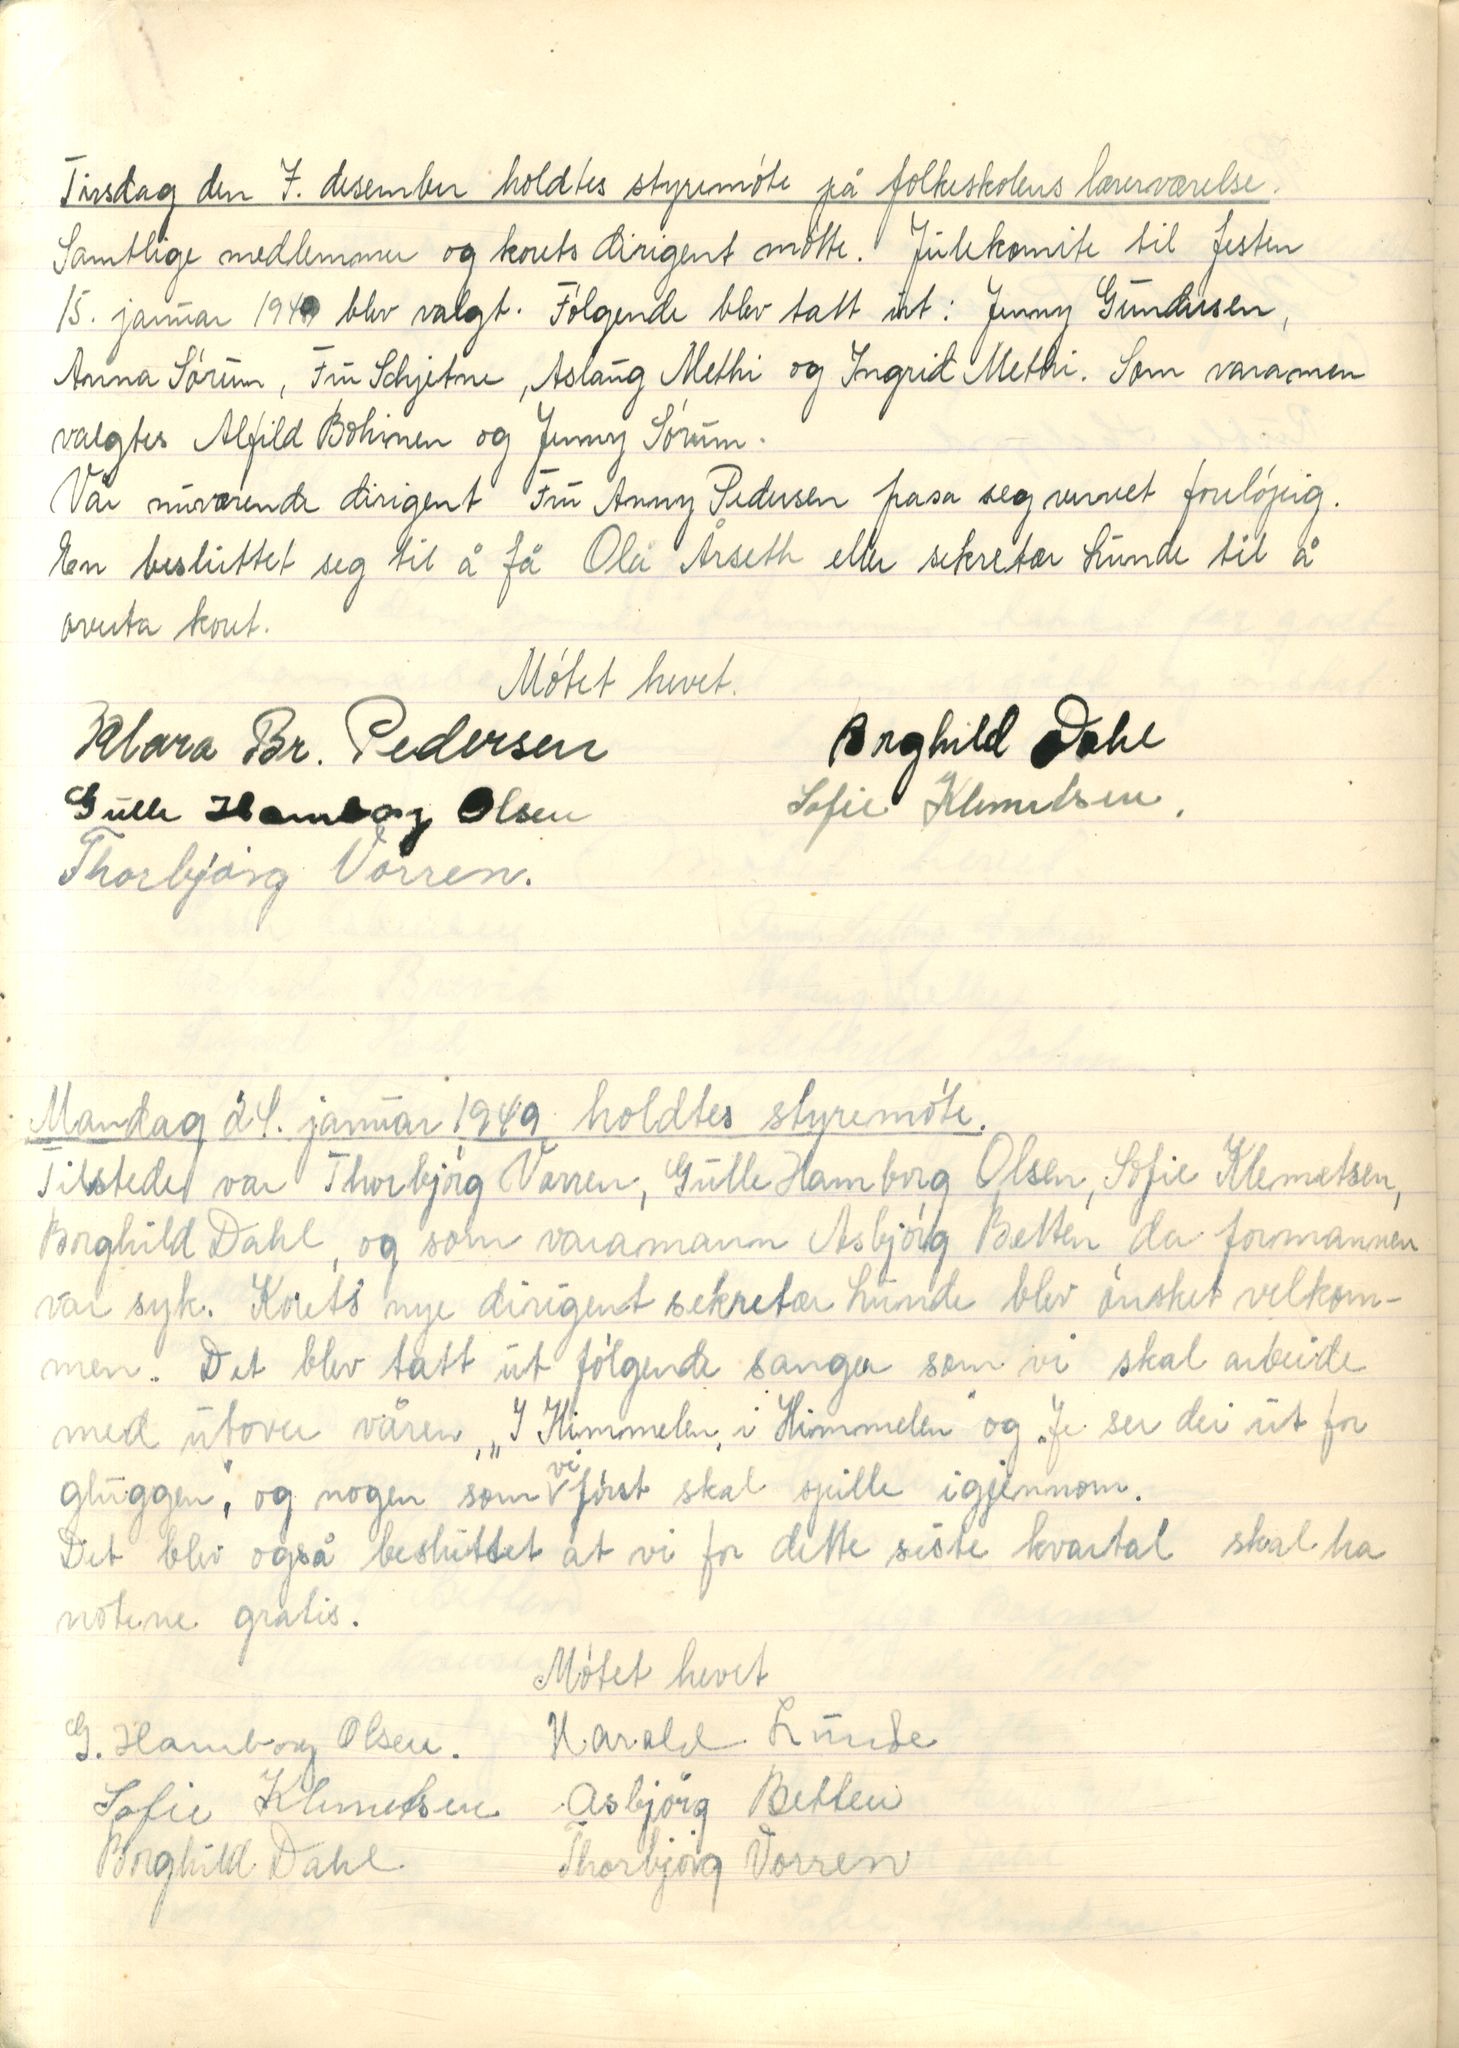 Tirsdag den 7. desember holdtes styremöte på folkeskolens lærerværelse.
Samtlige medlemmer og korets dirigent mötte. Julekomite til festen
15. januar 1949 blev valgt. Fölgende blev tatt ut: Jenny Gundersen,
Anna Sörum, Fru Schjetne, Aslaug Methi og Ingrid Methi. Som varamen
valgtes Alfild Böhmen og Jenny Sörum.
Vår nuværende dirigent Fru Anny Pedersen pasa seg vervet forelöpig.
En besluttet seg til å få Ola Årseth eller sekretær Lunde til å
overta koret.
Mötet hevet.
Klara Br. Pedersen Borghild Dahl
Gulle Hamborg Olsen Sofie Klemetsen.
Thorbjörg Vorren.
Mandag 24. januar 1949 holdtes styremöte.
Tilstede var Thorbjörg Vorren, Gulle Hamborg Olsen, Sofie Klemetsen,
Borghild Dahl, og som varamann Asbjörg Betten, da formannen
var syk. Korets nye dirigent sekretær Lunde blev önsket velkom-
men. Det blev tatt ut fölgende sanger som vi skal arbeide
med utover våren, „I Himmelen, i Himmelen" og „Je ser dei ut for
gluggen", og nogen som vi först skal spille igjennom.
Det blev også besluttet at vi for dette siste kvartal skal ha
notene gratis.
Mötet hevet
G. Hamborg Olsen. Harald Lunde
Sofie Klemetsen Asbjörg Betten
Borghild Dahl Thorbjörg Vorren